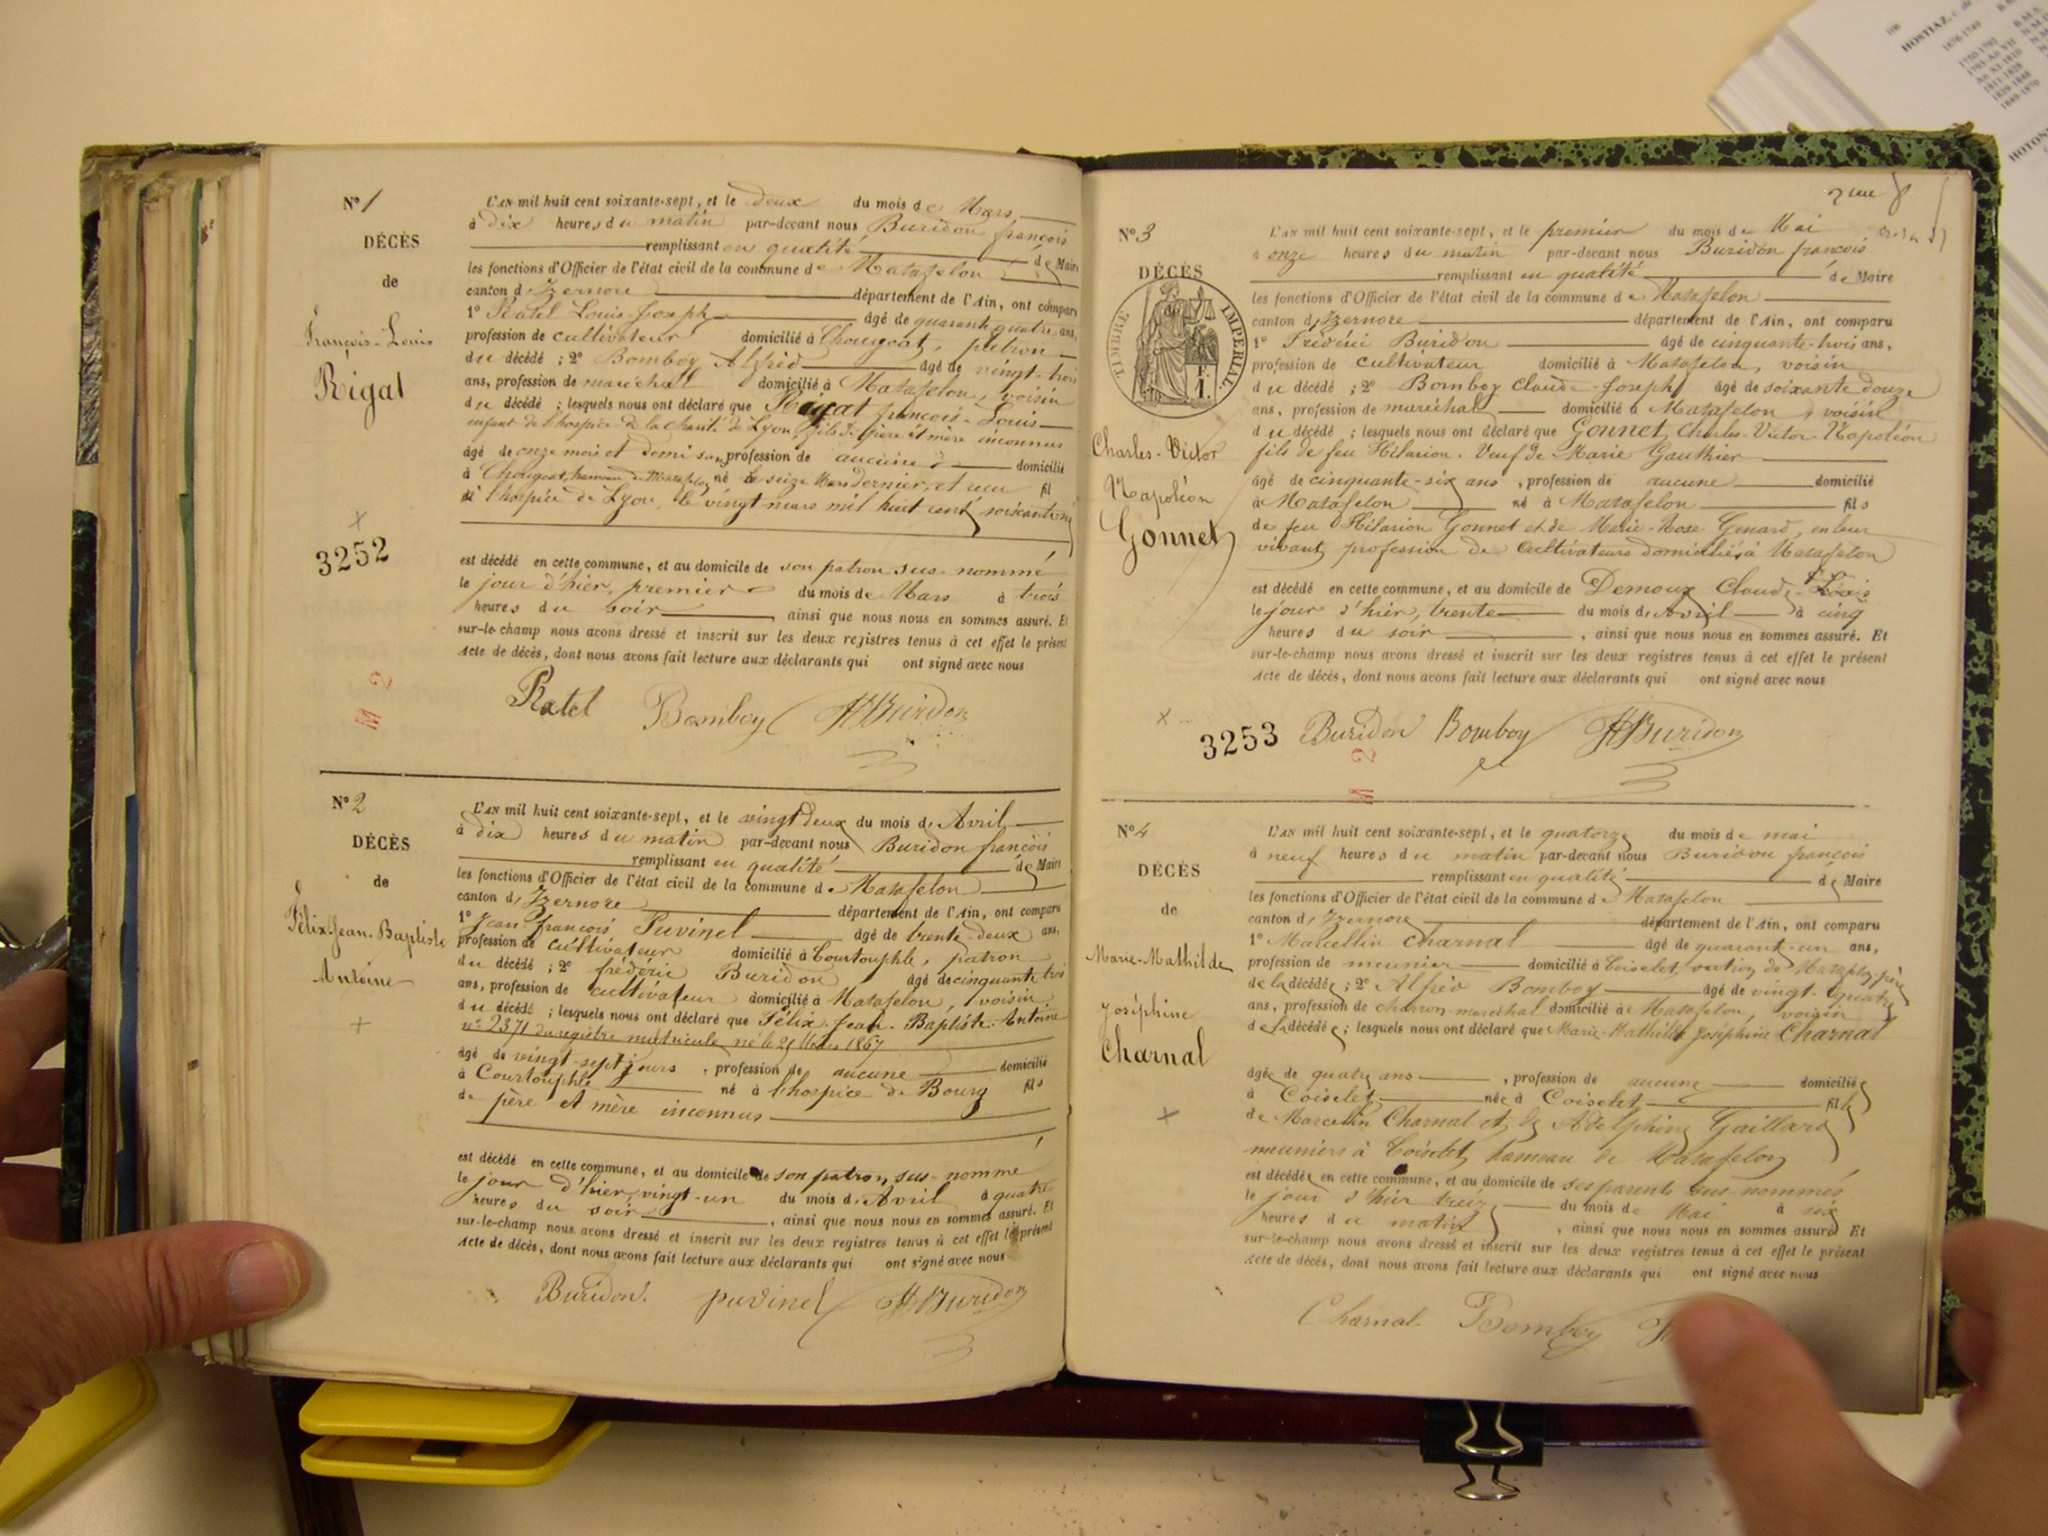 N° 1
DÉCÈS
de
François-Louis
Rigal
3252
L'AN mil huit cent soixante-sept, et le deux du mois de Mars
à dix heures du matin par-devant nous Buridon françois
remplissant en qualité de Maire
les fonctions d'Officier de l'état civil de la commune de Matafelon
canton d'Izernore département de l'Ain, ont comparu
1° Ratel Louis-Joseph âgé de quarante quatre ans,
profession de cultivateur domicilié à Chougeat, patron
du décédé ; 2° Bomboy Alfred âgé de vingt-trois
ans, profession de maréchall domicilié à Matafelon, voisin
du décédé ; lesquels nous ont déclaré que Rigal françois-Louis
enfant de l'hospice de la charité de Lyon, fils de père et mère inconnus
âgé de onze mois et demi profession de aucune domicilié
à Chougeat, hameau de Matafelon né le seize Mars dernier, et reçu fil
à l'hospice de Lyon, le vingt mars mil huit cent soixante six
est décédé en cette commune, et au domicile de son patron sus-nommé
le jour d'hier, premier du mois de Mars à trois
heures du soir, ainsi que nous nous en sommes assuré. Et
sur-le-champ nous avons dressé et inscrit sur les deux registres tenus à cet effet le présent
acte de décès, dont nous avons fait lecture aux déclarants qui ont signé avec nous
Ratel Bomboy Buridon
M 2
N° 2
DÉCÈS
de
Félix-Jean-Baptiste
Antoine
L'AN mil huit cent soixante-sept, et le vingt deux du mois d'Avril
à dix heures du matin par-devant nous Buridon françois
remplissant en qualité de Maire
les fonctions d'Officier de l'état civil de la commune de Matafelon
canton d'Izernore département de l'Ain, ont comparu
1° Jean françois Puvinel âgé de trente-deux ans,
profession de cultivateur domicilié à Courtouphle, patron
du décédé ; 2° frédéric Buridon âgé de cinquante trois
ans, profession de cultivateur domicilié à Matafelon, voisin
du décédé ; lesquels nous ont déclaré que Félix-Jean-Baptiste-Antoine
n° 2371 du registre matricule, né le 25 Mars 1867
âgé de vingt-sept jours, profession de aucune domicilié
à Courtouphle né à l'hospice de Bourg fils
de père et mère inconnus
est décédé en cette commune, et au domicile de son patron sus-nommé
le jour d'hier, vingt-un du mois d'Avril à quatre
heures du soir, ainsi que nous nous en sommes assuré. Et
sur-le-champ nous avons dressé et inscrit sur les deux registres tenus à cet effet le présent
acte de décès, dont nous avons fait lecture aux déclarants qui ont signé avec nous
Buridon puvinel Buridon
N° 3
DÉCÈS
de
TIMBRE IMPÉRIAL
Charles-Victor
Napoléon
Gonnet
3253
L'AN mil huit cent soixante-sept, et le premier du mois de Mai
à onze heures du matin par-devant nous Buridon françois
remplissant en qualité de Maire
les fonctions d'Officier de l'état civil de la commune de Matafelon
canton d'Izernore département de l'Ain, ont comparu
1° Frédéric Buridon âgé de cinquante-trois ans,
profession de cultivateur domicilié à Matafelon, voisin
du décédé ; 2° Bomboy Claude-Joseph âgé de soixante douze
ans, profession de maréchal domicilié à Matafelon, voisin
du décédé ; lesquels nous ont déclaré que Gonnet Charles-Victor-Napoléon
fils de feu Hilarion. Veuf de Marie Gauthier
âgé de cinquante-six ans, profession de aucune domicilié
à Matafelon né à Matafelon fils
de feu Hilarion Gonnet et de Marie-Rose Genard, en leur
vivant profession de cultivateurs domiciliés à Matafelon
est décédé en cette commune, et au domicile de Demoux Claude-Louis
le jour d'hier, trente du mois d'Avril à cinq
heures du soir, ainsi que nous nous en sommes assuré. Et
sur-le-champ nous avons dressé et inscrit sur les deux registres tenus à cet effet le présent
acte de décès, dont nous avons fait lecture aux déclarants qui ont signé avec nous
Buridon Bomboy Buridon
M 2
N° 4
DÉCÈS
de
Marie-Mathilde
Joséphine
Charnal
L'AN mil huit cent soixante-sept, et le quatorze du mois de mai
à neuf heures du matin par-devant nous Buridon françois
remplissant en qualité de Maire
les fonctions d'Officier de l'état civil de la commune de Matafelon
canton d'Izernore département de l'Ain, ont comparu
1° Marcellin Charnal âgé de quarante-un ans,
profession de meunier domicilié à Coiselet, section de Matafelon, père
de la décédée ; 2° Alfred Bomboy âgé de vingt-quatre
ans, profession de charron-maréchal domicilié à Matafelon, voisin
de la décédée ; lesquels nous ont déclaré que Marie-Mathilde Joséphine Charnal
âgée de quatre ans, profession de aucune domiciliée
à Coiselet née à Coiselet fille
de Marcellin Charnal et de Adelphine Gaillard
meuniers à Coiselet, hameau de Matafelon
est décédée en cette commune, et au domicile de ses parents sus-nommés
le jour d'hier treize du mois de Mai à six
heures du matin, ainsi que nous nous en sommes assuré Et
sur-le-champ nous avons dressé et inscrit sur les deux registres tenus à cet effet le présent
acte de décès, dont nous avons fait lecture aux déclarants qui ont signé avec nous
Charnal Bomboy
106
HOSTIAZ